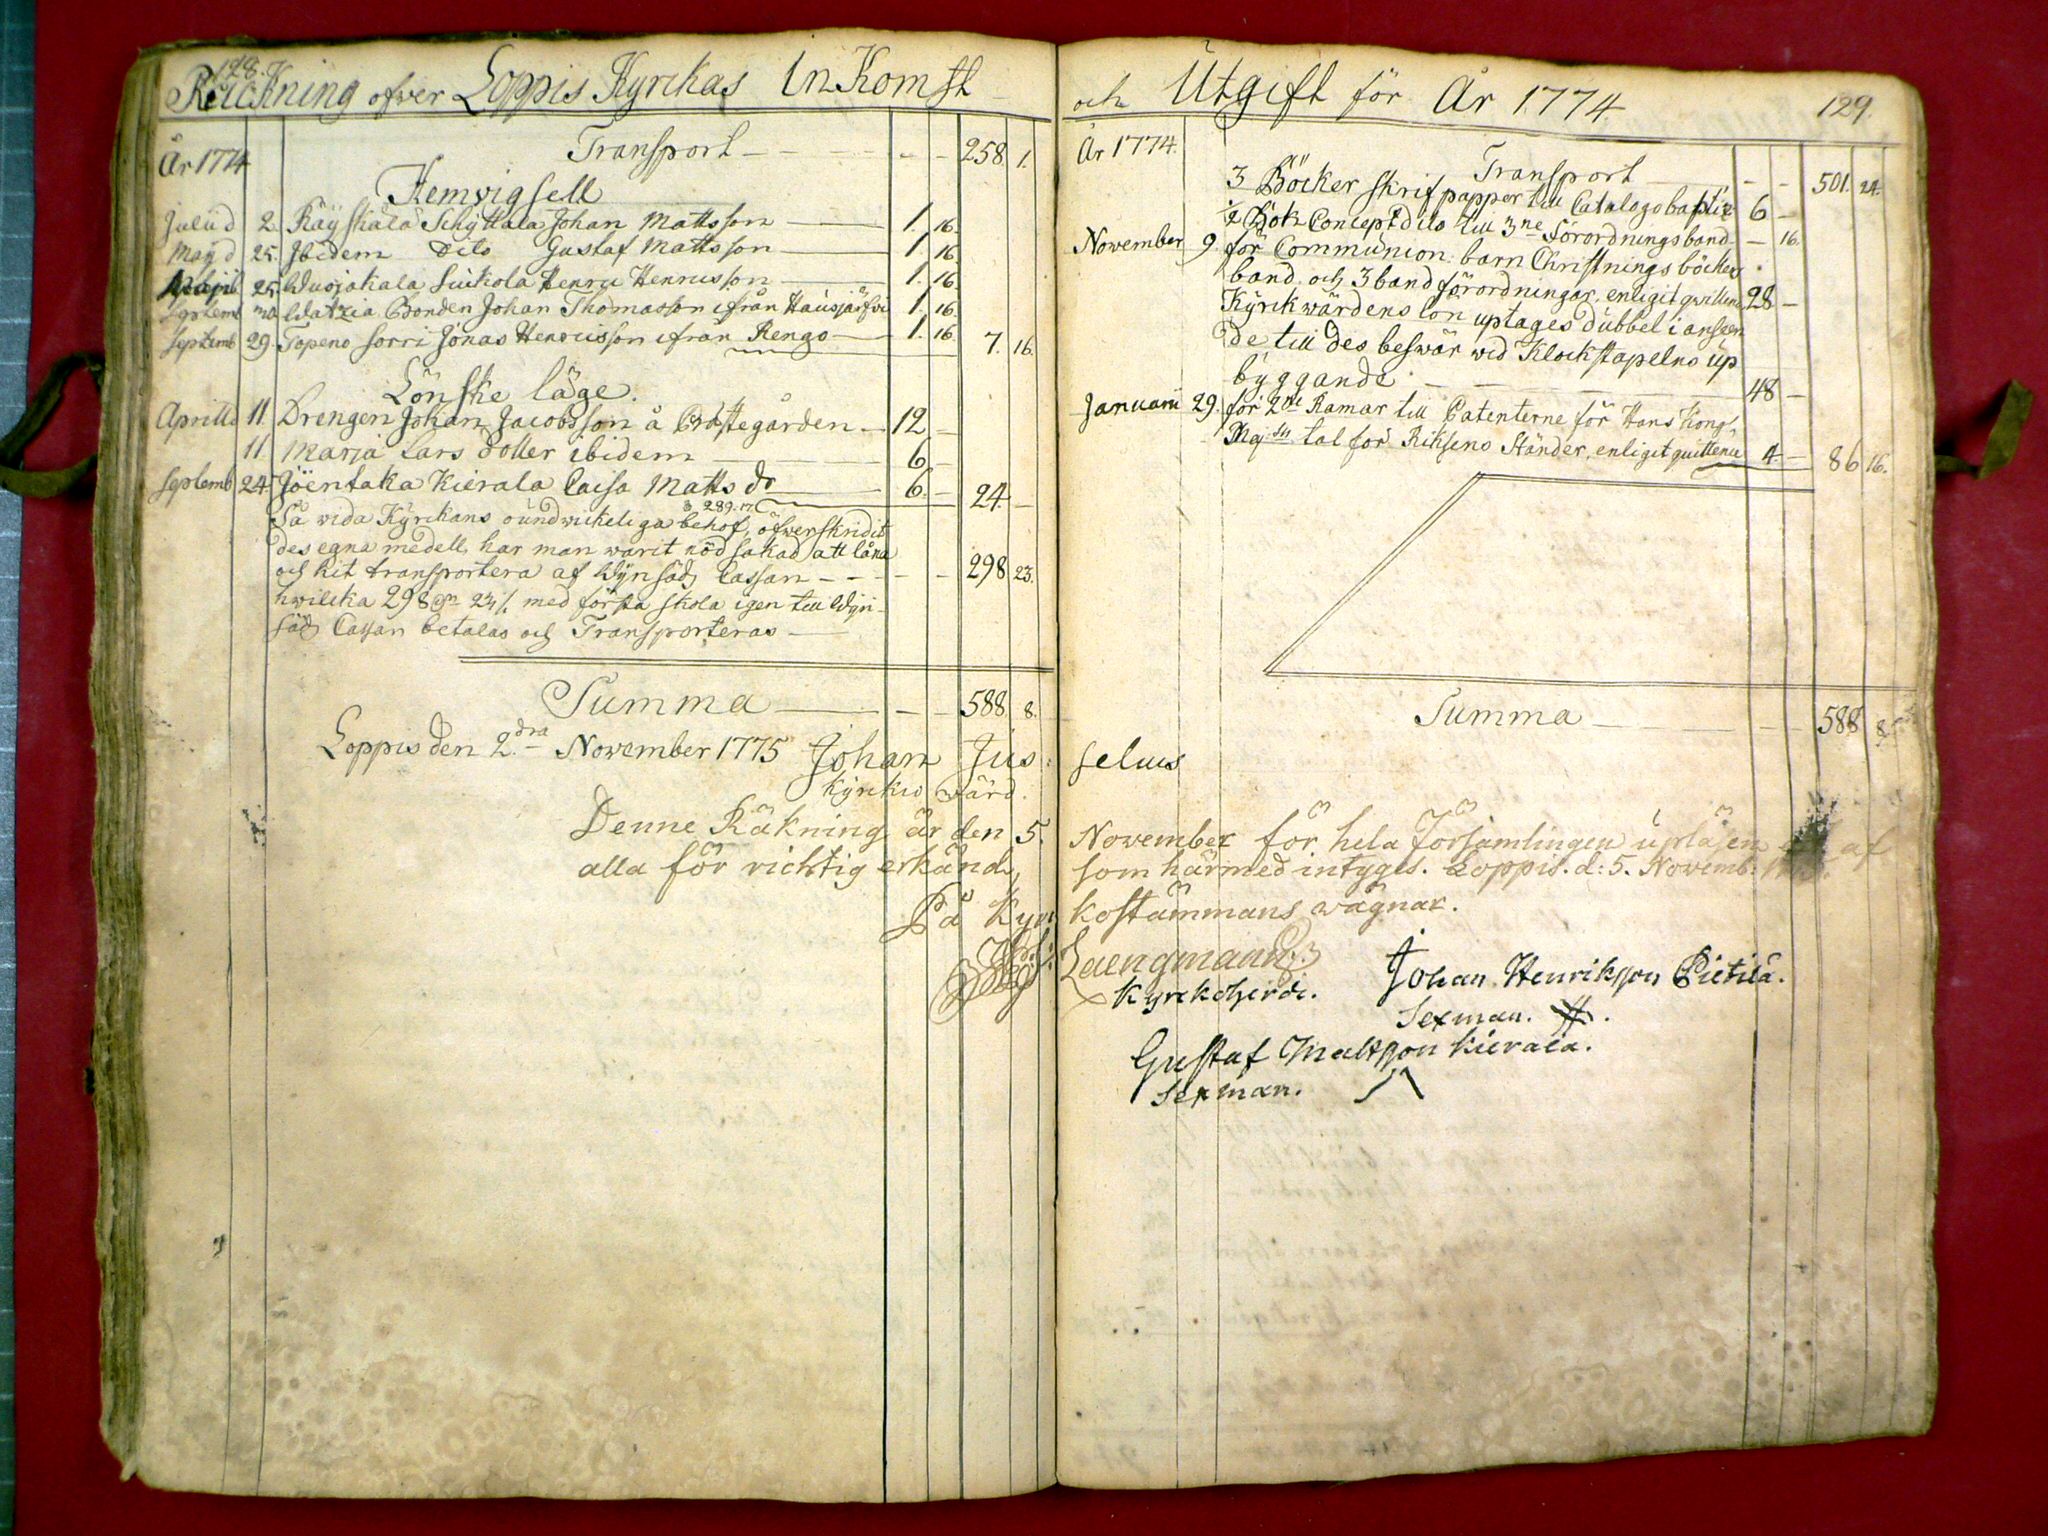 128.
Räckning ofwer Loppis Kyrckas InKomst
År 1774 Transport 258. 1.
Hemvigsell
Julii d 2 Räyskälä Schyttälä Johan Mattsson 1. 16.
Maij d 25. Ibidem Dito Gustaf Mattsson 1 16
25. Wuojakala Suikola Henric Henricsson 1. 16.
Septemb Watzia Bonden Johan Thomasson ifrån Hausjärfwi 1. 16.
Septemb 29. Topeno Sorri Jonas Henricsson ifrån Rengo 1. 16 7. 16.
Lönske läge.
Aprilis 11. Drengen Johan Jacobsson å Prästegården 12
11. Maria Lars dotter ibidem 6
Septemb 24 Jöentaka Kierala Caisa Matts dr 6. 24.
Så vida Kyrckans oundwickeliga behof, öfwerskridit
des egna medell, har man warit nödsakad att låna
och hit transportera af Wynsäds Cassan 298 23.
hwilcka 298 23 med första skola igen till Wyn-
säds Cassan betalas och Transporteras
Summa 588. 8.
Loppis den 2.dra November 1775 Johan Jus:
Kyrckio wärd.
Denne Räkning är den 5.
alla för richtig erkänd,
På Kyr
och Utgift för År 1774 129.
År 1774. Transport 501. 24.
3 Böcker skrifpapper till Catalogo baptiz 6
½ Bok Concept dito till 3ne Förordningsband 16.
November 9. för Communion barn Christnings böcker
band och 3 band förordningar, enligit qwittence 28
Kyrkwärdens lön uptages dubbel i anseen
de till des beswär wid Klockstapelns up
byggande 48
Januarii 29. för 2ne Ramar till Patenterne för Hans Kongl.
Maj:tts tal för Riksens Ständer, enligit quittence 4 86 16.
Summa 588 8
selius
November för hela Församlingen upläsen af
som härmed intyges. Loppis. d: 5. Novemb:
kostämmans wägnar.
Laengmann
Kyrckoherde.
Johan Henriksson Pietilä.
Sexman.
Gustaf Mattsson Kierala.
Sexman.